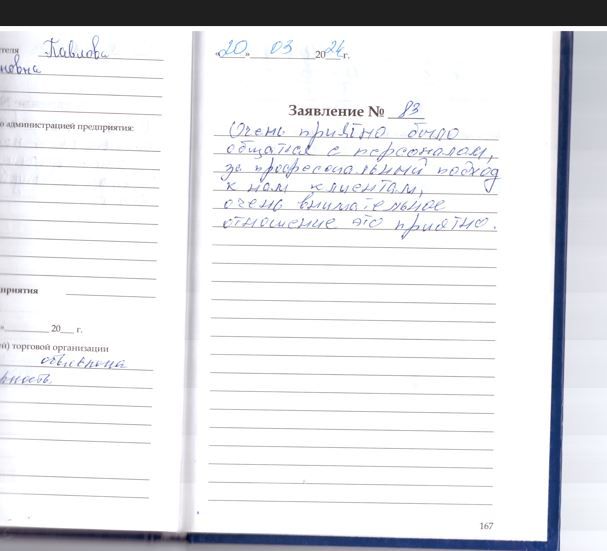 теля Павлова
новна
о администрацией предприятия:
приятия
»_________ 20___ г.
ей) торговой организации
объявлена
рность
«20» 03 2024г.
Заявление № 83
Очень приятно было
общатся с персоналом,
за професеональный подход
к нам клиентам,
очень внимательное
отношение это приятно.
167